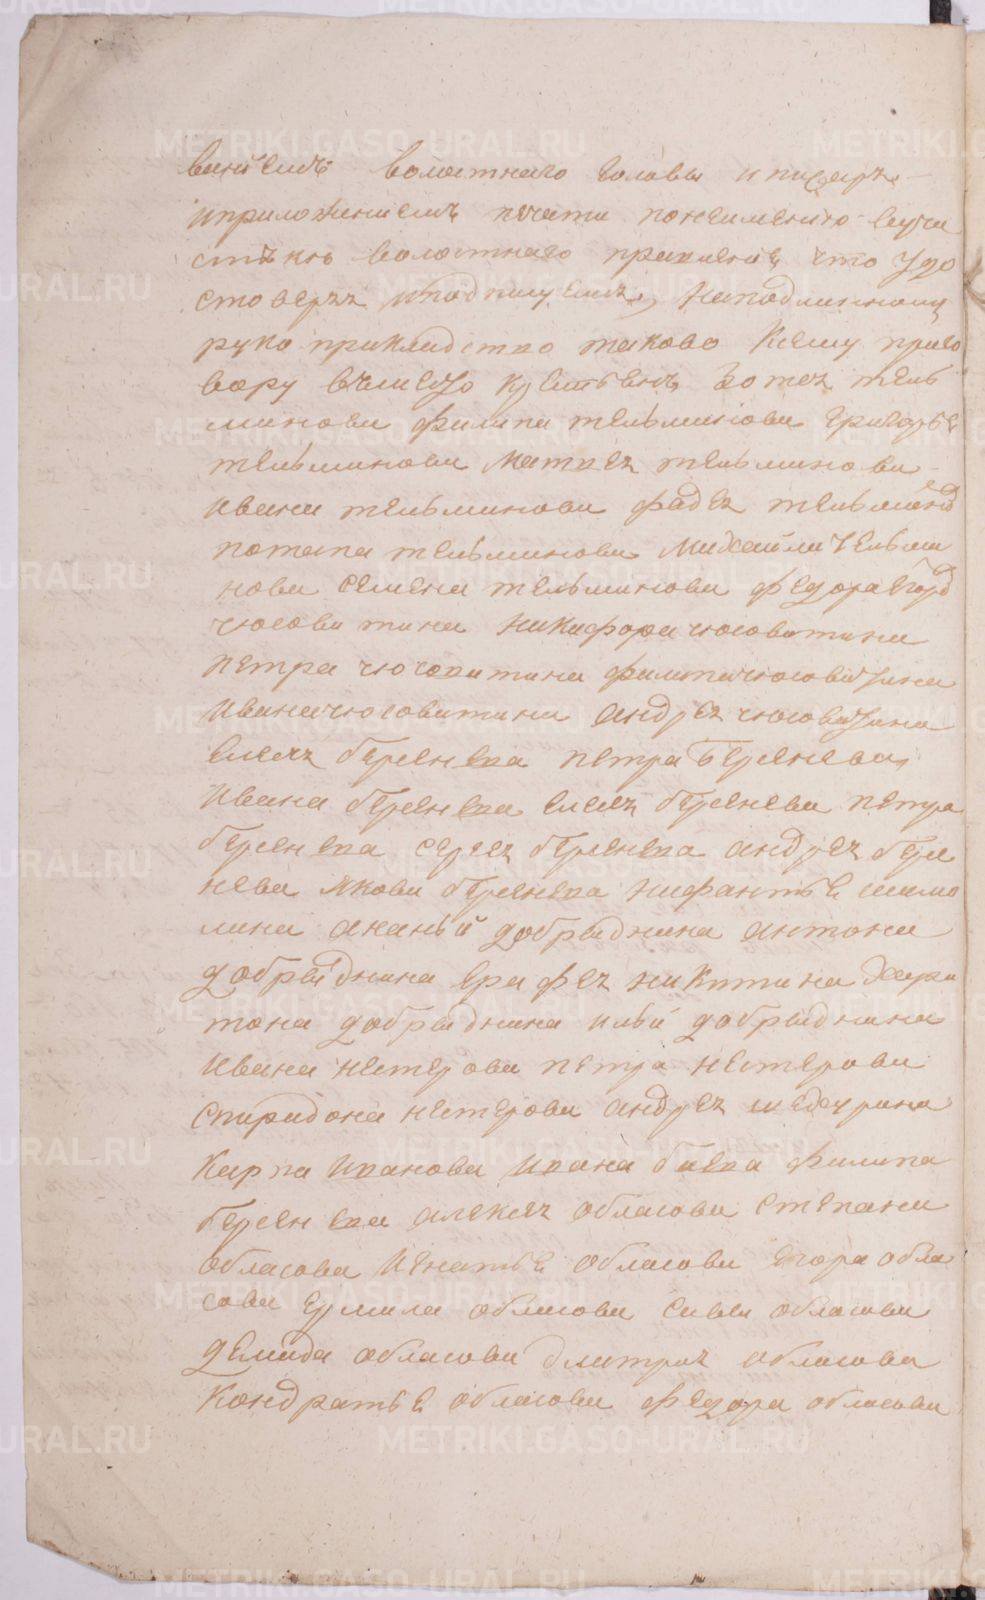 ваніемъ волостнаго головы и писаря
и приложеніемъ печати понеимению вучи
сткнь волостнаго правленія что удо
стоверяя и подписуемъ, На подлинному
руко прикладство таково Ксему приго
вору вместо крестьянъ Зотея тель
минова филипа тельминова Григорье
тельминова Матвея тельминова
Ивана тельминова фадея тельмино
потапа тельминова Михайли тельми
нова семена тельминова федора Егор
чюсовитина Никифора чюсовитина
Петра чюсовитина филипа чюсовитина
Ивана чюсовитина андрея чюсовитина
елисея береснева петра береснева
Ивана береснева елисея береснева петра
береснева сергея береснева андрея бере
нева Якова береснева нифантье шамо
лина ананьи добрыднина антона
добрыднина ерофея никитина Хари
тона добрыднина ильи добрыднина
Ивана нестерова петра нестерова
Спиридона нестерова андрея шедчурина
Карпа Иванова Ивана баева филипа
береснева алексея обласова степана
обласова Игнатье обласова егора обла
сова ермила обласова савы обласова
демида обласова дмитрия обласова
Кондратье обласова федора обласова
METRIKI.GASO-URAL.RU